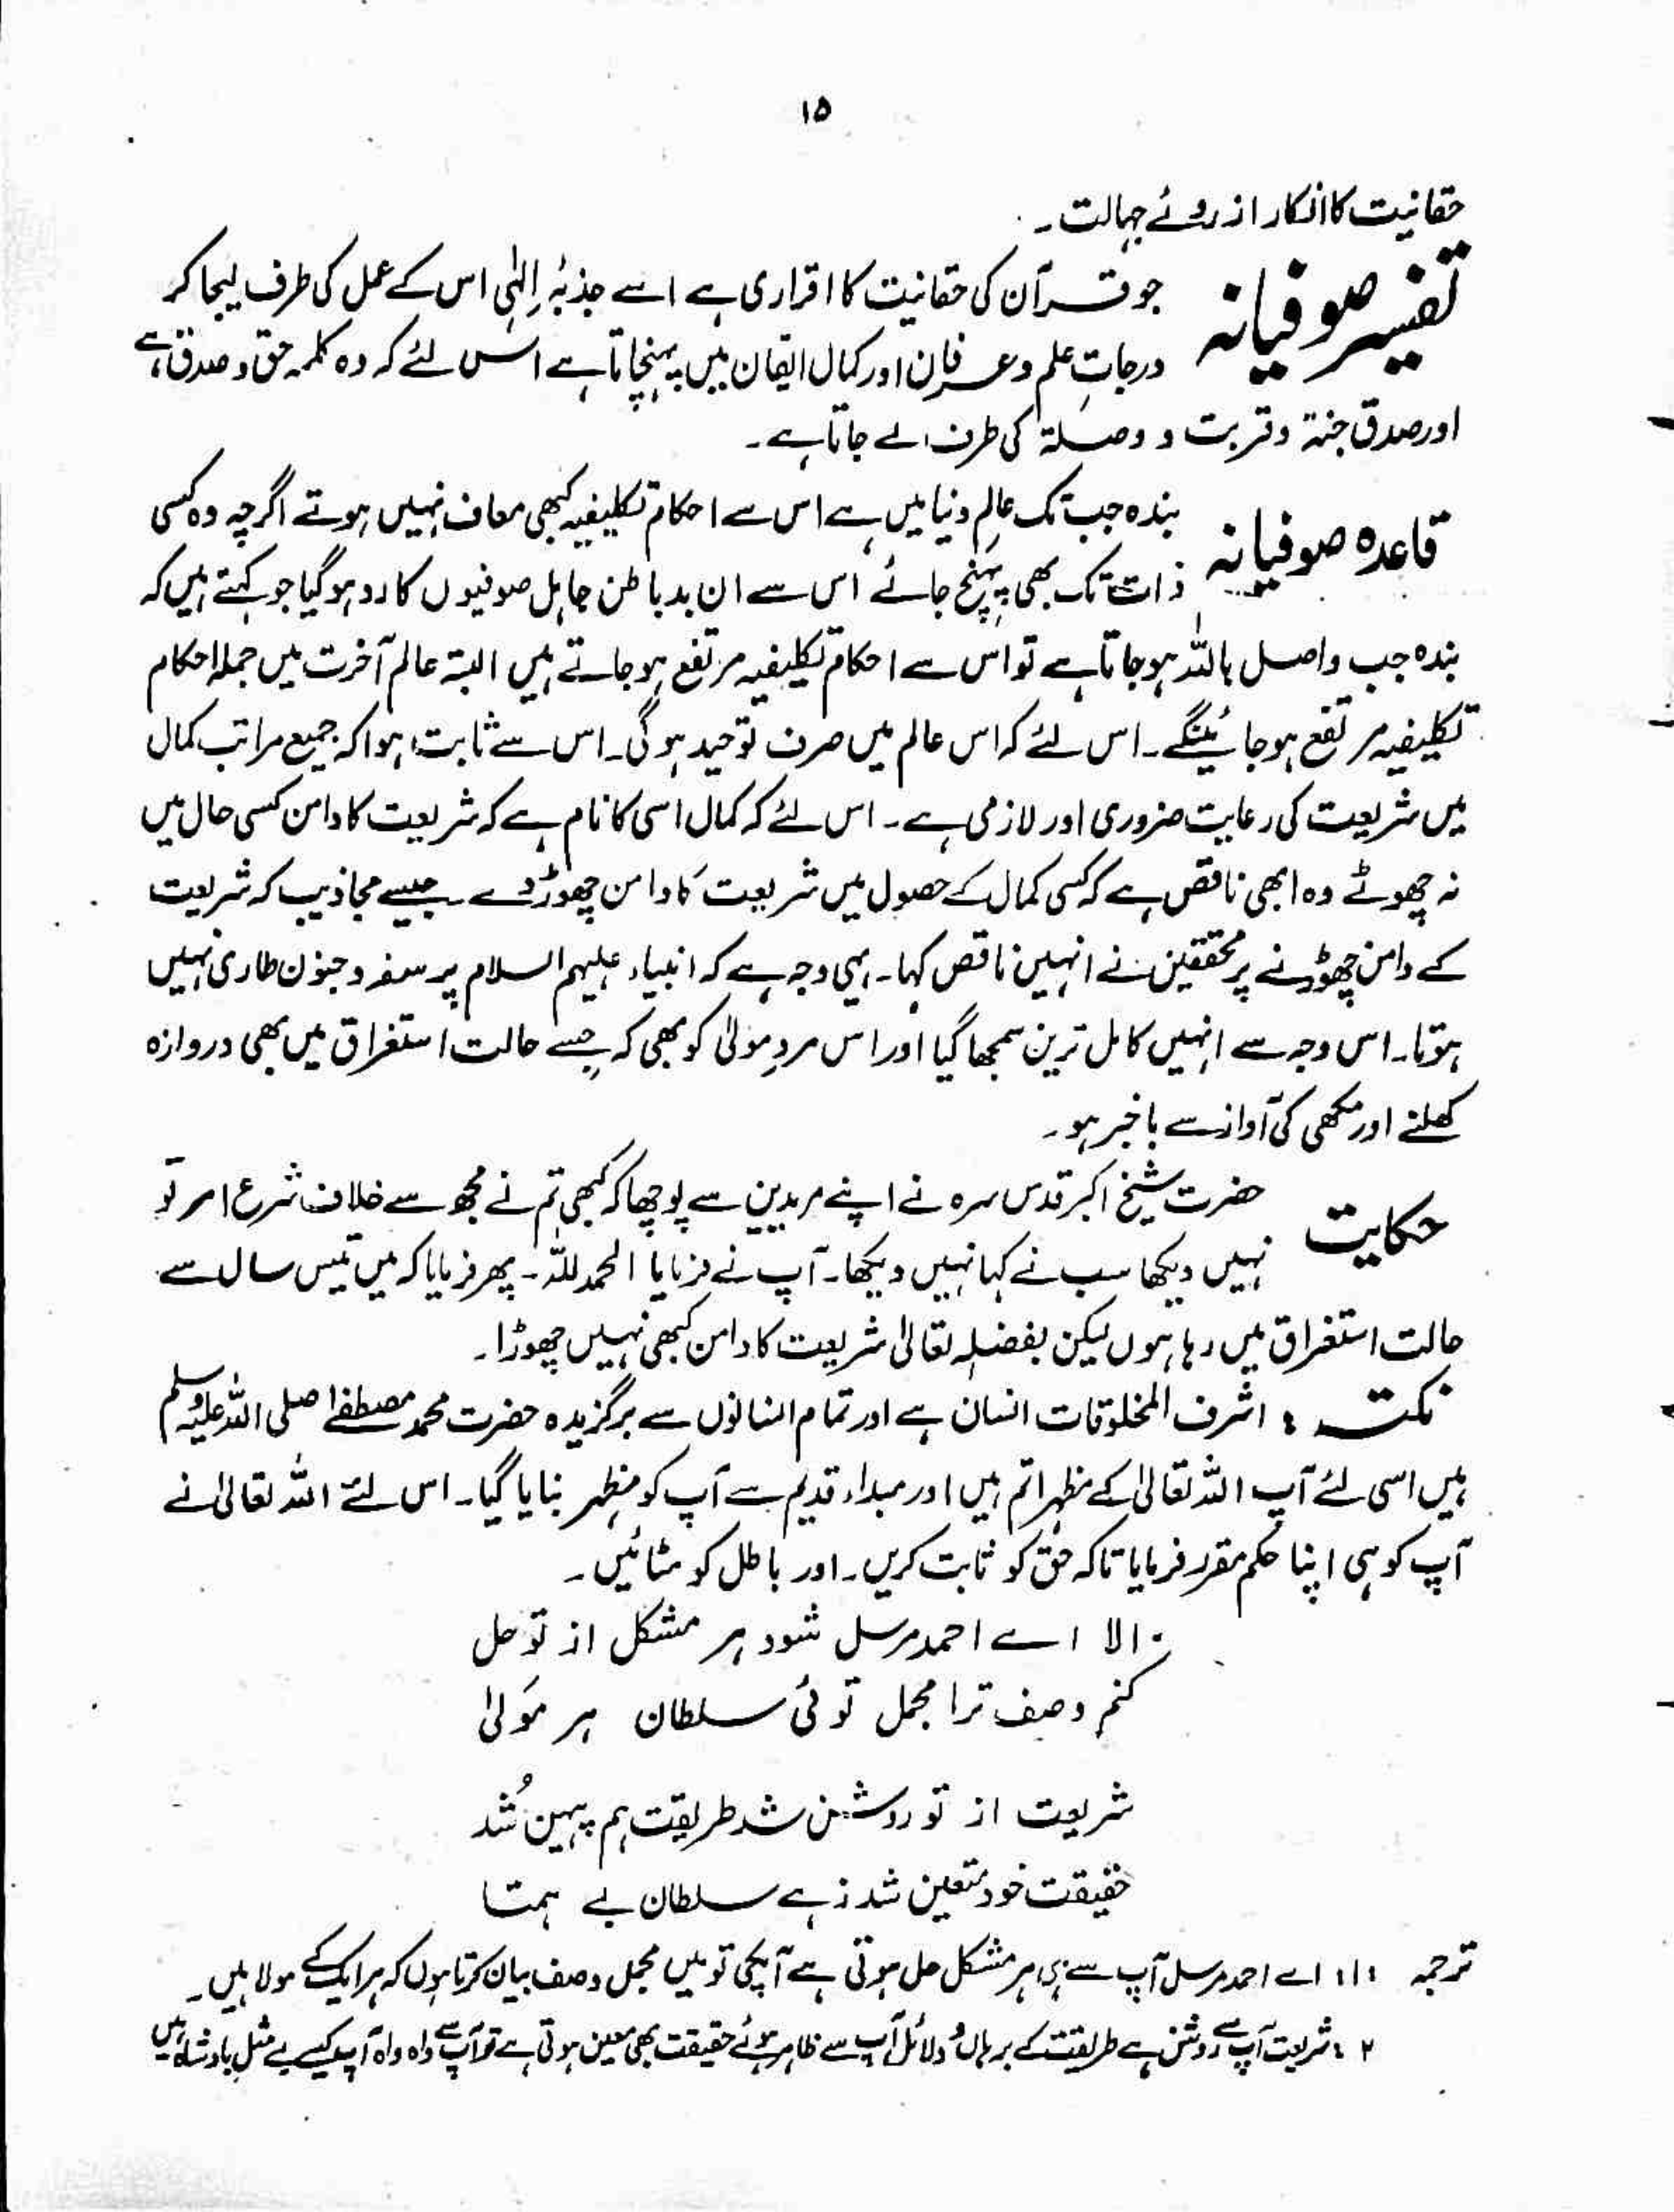 ۱۵
حقانیت کا انکار از روئے جہالت۔
تفسیر صوفیانہ
جو قرآن کی حقانیت کا اقراری ہے اسے جذبۂ اِلٰہی اس کے عمل کی طرف لیجا کر
درجاتِ علم و عرفان اور کمال ایقان میں پہنچاتا ہے اس لئے کہ وہ کلمہ حق و صدق ہے
اور صدق جنۃ و قربت و وصلۃ کی طرف لے جاتا ہے۔
قاعدہ صوفیانہ
بندہ جب تک عالم دنیا میں ہے اس سے احکام تکلیفیہ کبھی معاف نہیں ہوتے اگرچہ وہ کسی
ذات تک بھی پہنچ جائے اس سے ان بد باطن جاہل صوفیوں کا رد ہو گیا جو کہتے ہیں کہ
بندہ جب واصل باللہ ہو جاتا ہے تو اس سے احکام تکلیفیہ مرتفع ہو جاتے ہیں البتہ عالم آخرت میں جملہ احکام
تکلیفیہ مرتفع ہو جائینگے۔ اس لئے کہ اس عالم میں صرف توحید ہو گی۔ اس سے ثابت ہوا کہ جمیع مراتب کمال
میں شریعت کی رعایت ضروری اور لازمی ہے۔ اس لئے کہ کمال اسی کا نام ہے کہ شریعت کا دامن کسی حال میں
نہ چھوٹے وہ ابھی ناقص ہے کہ کسی کمال کے حصول میں شریعت کا دامن چھوڑ دے۔ جیسے مجاذیب کہ شریعت
کے دامن چھوڑنے پر محققین نے انہیں ناقص کہا۔ یہی وجہ ہے کہ انبیاء علیہم السلام پر سفہ و جنون طاری نہیں
ہوتا۔ اس وجہ سے انہیں کامل ترین سمجھا گیا اور اس مردِ مولیٰ کو بھی کہ جسے حالت استغراق میں بھی دروازہ
کھلنے اور مکھی کی آواز سے باخبر ہو۔
حکایت
حضرت شیخ اکبر قدس سرہ نے اپنے مریدین سے پوچھا کہ کبھی تم نے مجھ سے خلاف شرع امر تو
نہیں دیکھا سب نے کہا نہیں دیکھا۔ آپ نے فرمایا الحمد للہ۔ پھر فرمایا کہ میں تیس سال سے
حالت استغراق میں رہا ہوں لیکن بفضلہ تعالیٰ شریعت کا دامن کبھی نہیں چھوڑا۔
نکتہ : اشرف المخلوقات انسان ہے اور تمام انسانوں سے برگزیدہ حضرت محمد مصطفےٰ صلی اللہ علیہ وسلم
ہیں اسی لئے آپ اللہ تعالیٰ کے مظہر اتم ہیں اور مبداء قدیم سے آپ کو مظہر بنایا گیا۔ اس لئے اللہ تعالیٰ نے
آپ کو ہی اپنا حکم مقرر فرمایا تاکہ حق کو ثابت کریں۔ اور باطل کو مٹائیں۔
الا اے احمد مرسل شود ہر مشکل از تو حل
کنم وصف ترا مجمل توئی سلطان ہر مَولیٰ
شریعت از تو روشن شد طریقت ہم مبہین شُد
حقیقت خود متعین شد زہے سلطان بے ہمتا
ترجمہ ۱: اے احمد مرسل آپ سے ہی ہر مشکل حل ہوتی ہے آپکی تو میں مجمل وصف بیان کرتا ہوں کہ ہر ایک کے مولا ہیں۔
۲: شریعت آپ سے روشن ہے طریقت کے برہان و دلائل آپ سے ظاہر ہوئے حقیقت بھی معین ہوتی ہے تو آپ سے واہ واہ آپ کیسے بے مثل بادشاہ ہیں